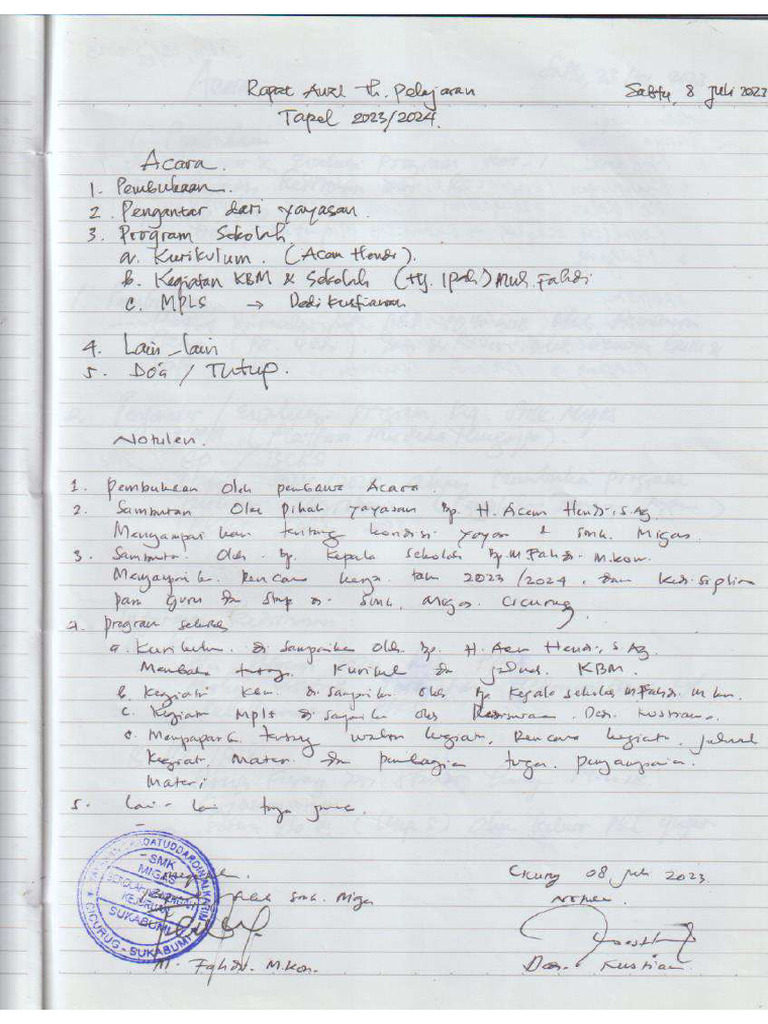 Rapat Awal Th. Pelajaran
Sabtu, 8 Juli 2023
Tapel 2023/2024.
Acara.
1. Pembukaan.
2. Pengantar dari yayasan.
3. Program Sekolah.
a. Kurikulum. (Acam Hendi).
b. Kegiatan KBM & Sekolah (Hj. Ipah) Muh. Fahdi
c. MPLS → Dedi Kustiawan
4. Lain-lain
5. Do'a / Tutup.
Notulen.
1. Pembukaan Oleh pembawa Acara.
2. Sambutan Oleh Pihak yayasan Bp. H. Acam Hendi, S.Ag
Menyampaikan tentang kondisi & SMK. Migas.
3. Sambutan Oleh. Bp. Kepala sekolah Bp. M Fahdi. M.Kom.
Rencana kerja 2023/2024, dan
para Guru dan SMK. Migas. Cicurug
program sekolah
a. Kurikulum. di sampaikan Oleh. Bp. H. Acam Hendi, S Ag.
tentang Kurikul dan jadwal KBM.
b. Kegiatan KBM. di sampaikan oleh Bp Kepala sekolah M. Fahdi. M.Kom.
c. Kegiatan MPLS di sampaikan oleh Dedi. Kustiawan.
tentang waktu kegiatan, Rencana kegiatan, jadwal
Kegiatan, Materi dan pembagian tugas. penyampaian.
Materi
5. Lain-lain
Cicurug 08 Juli 2023.
SMK. Migas
Notulen
SMK
MIGAS
SUKABUMI
CICURUG - SUKABUMI
M. Fahdi. M.Kom.
Kustiawan